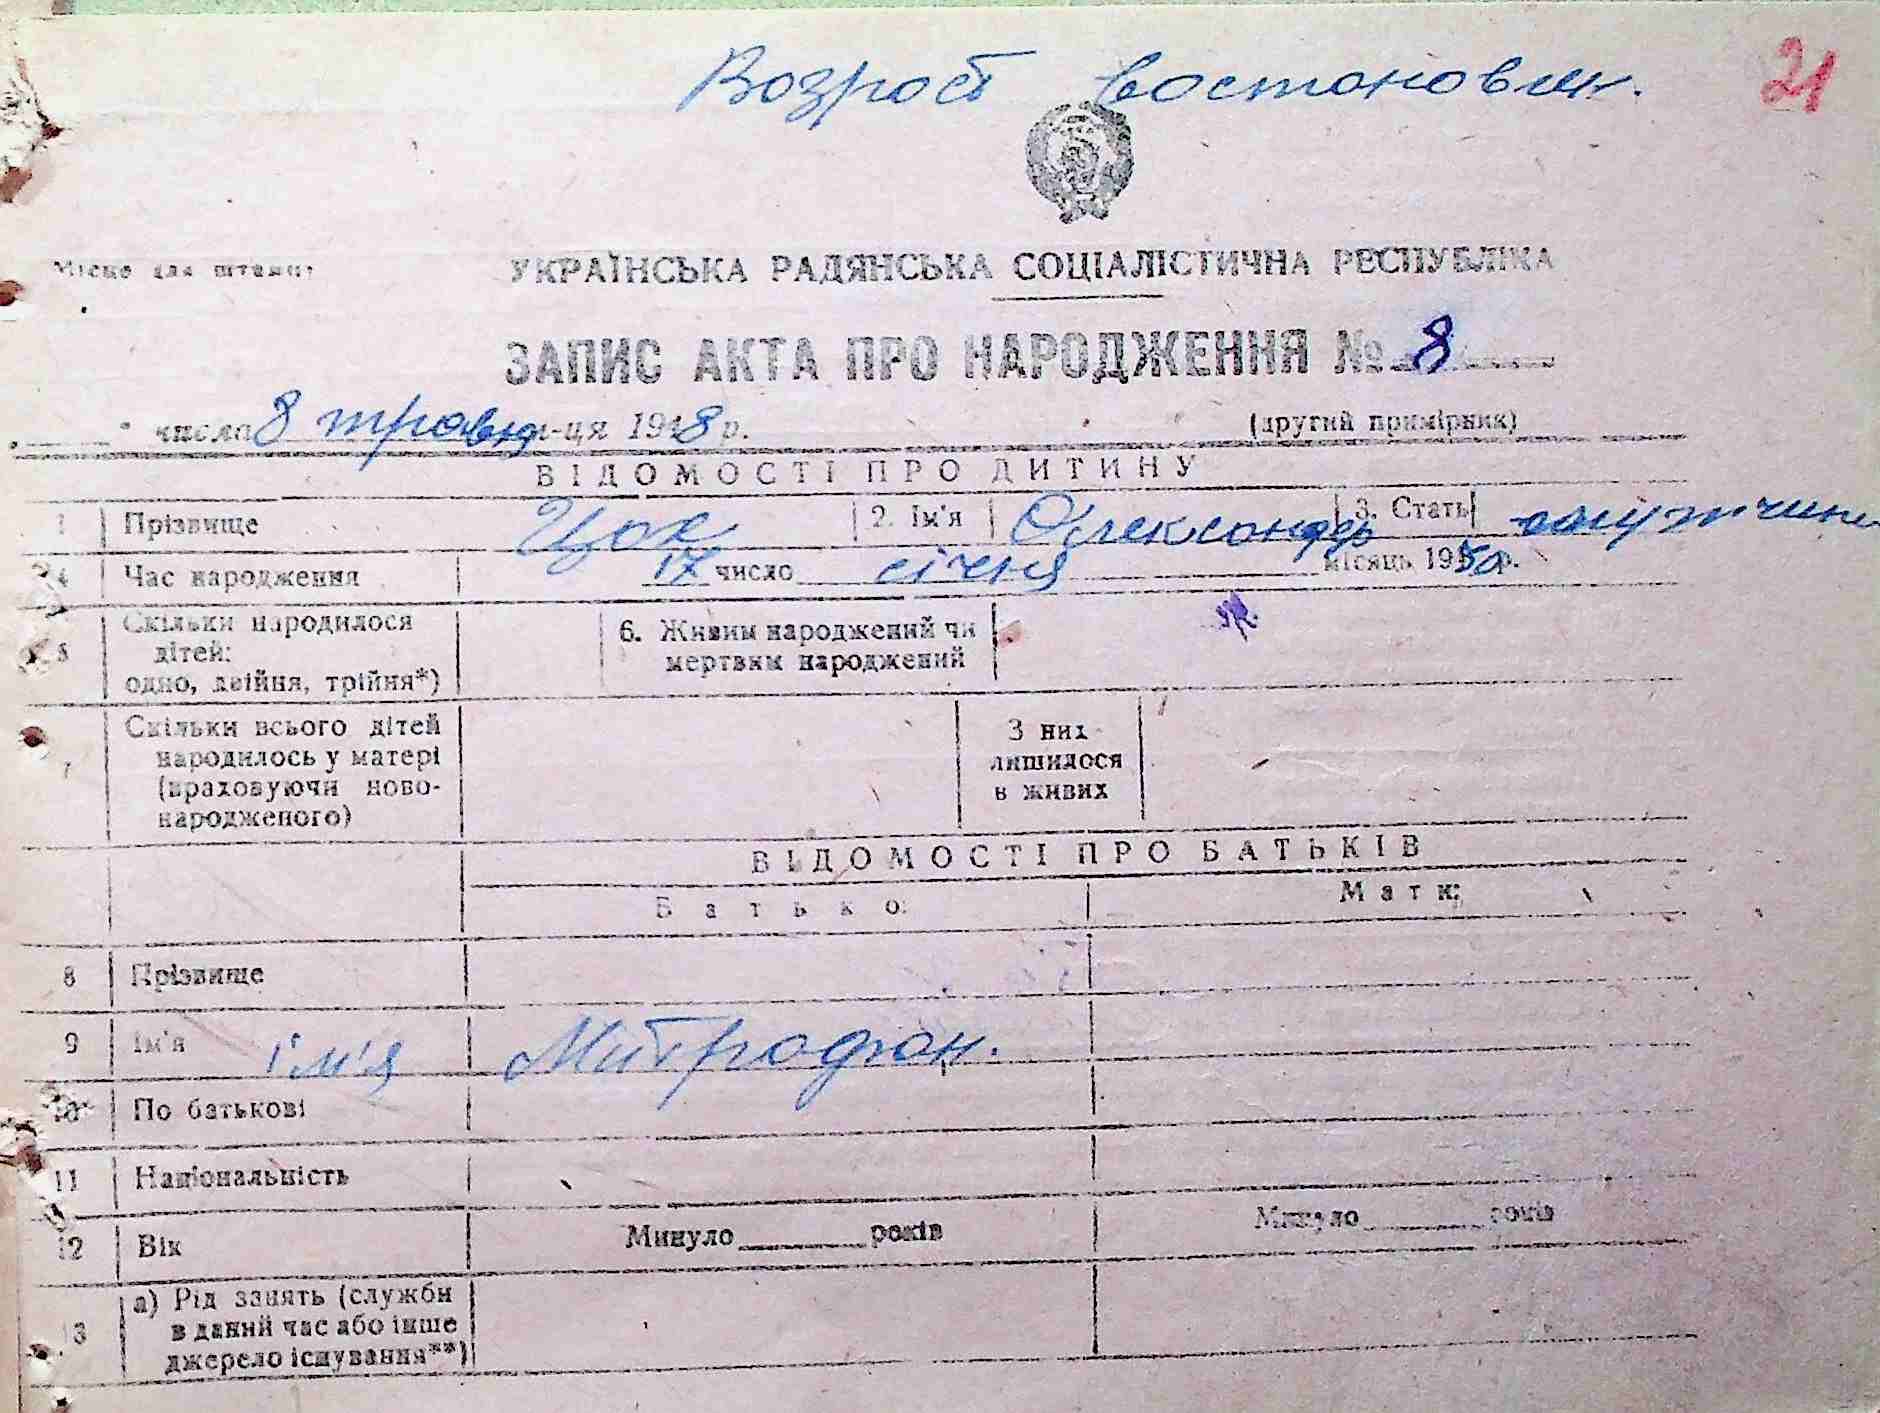 Возраст востановлен.
21
Місце для штампу
УКРАЇНСЬКА РАДЯНСЬКА СОЦІАЛІСТИЧНА РЕСПУБЛІКА
ЗАПИС АКТА ПРО НАРОДЖЕННЯ № 8
" числа 8 травня м-ця 1948 р. (другий примірник)
ВІДОМОСТІ ПРО ДИТИНУ
1 Прізвище Цок 2. Ім'я Олександр 3. Стать мужчина
4 Час народження 17 число січня місяць 1950 р.
5 Скільки народилося дітей: одно, двійня, трійня*) 6. Живим народжений чи мертвим народжений
7 Скільки всього дітей народилось у матері (враховуючи ново-народженого) З них лишилося в живих
ВІДОМОСТІ ПРО БАТЬКІВ
Батько: Мати:
8 Прізвище
9 Ім'я ім'я Митрофан.
10 По батькові
11 Національність
12 Вік Минуло років Минуло років
13 а) Рід занять (служби в даний час або інше джерело існування**)